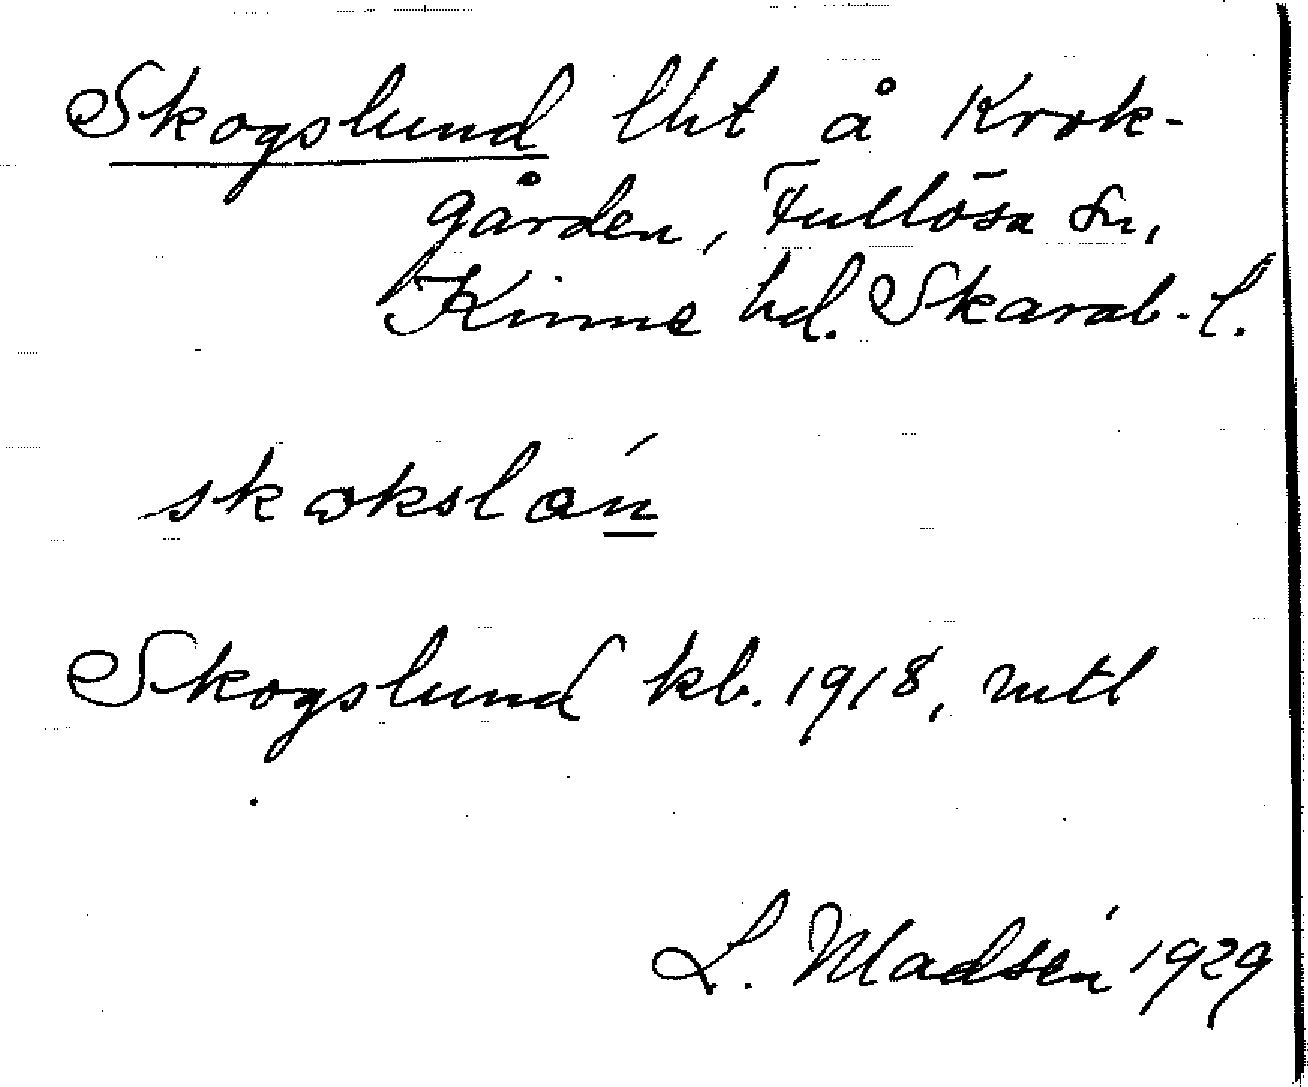 Skogslund lht å Krok-
gården, Fullösa sn,
Kinne hd. Skarab. l.
skɷkslɷń
Skogslund kb. 1918, mtl
L. Madsén 1929